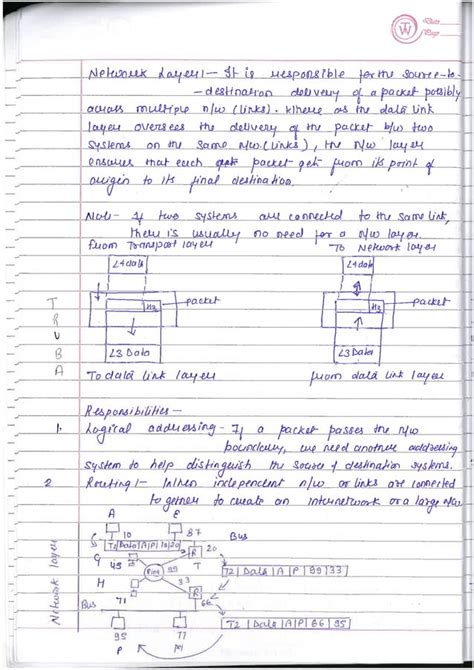 TW
Date
Page
Network Layer :- It is responsible for the source-to-
-destination delivery of a packet possibly
across multiple n/w (links). Where as the data link
layer oversees the delivery of the packet b/w two
systems on the same n/w (links), the n/w layer
ensures that each packet get from its point of
origin to its final destination.
Note - If two systems are connected to the same link,
there is usually no need for a n/w layer.
from Transport layer
To Network layer
L4 data
L4 data
packet
H3
packet
H3
L3 Data
L3 Data
To data link layer
from data link layer
T
R
U
B
A
Responsibilities -
1. Logical addressing - If a packet passes the n/w
boundary, we need another addressing
system to help distinguish the source & destination systems.
2 Routing :- When independent n/w or links are connected
together to create an internetwork or a large n/w.
A
E
10
87
Bus
T2 | Data | A | P | 10 | 20
R
20
G
T
Ring
99
H
33
T2 | Data | A | P | 99 | 33
R
71
Bus
66
T2 | Data | A | P | 66 | 95
95
77
P
M
Network layer